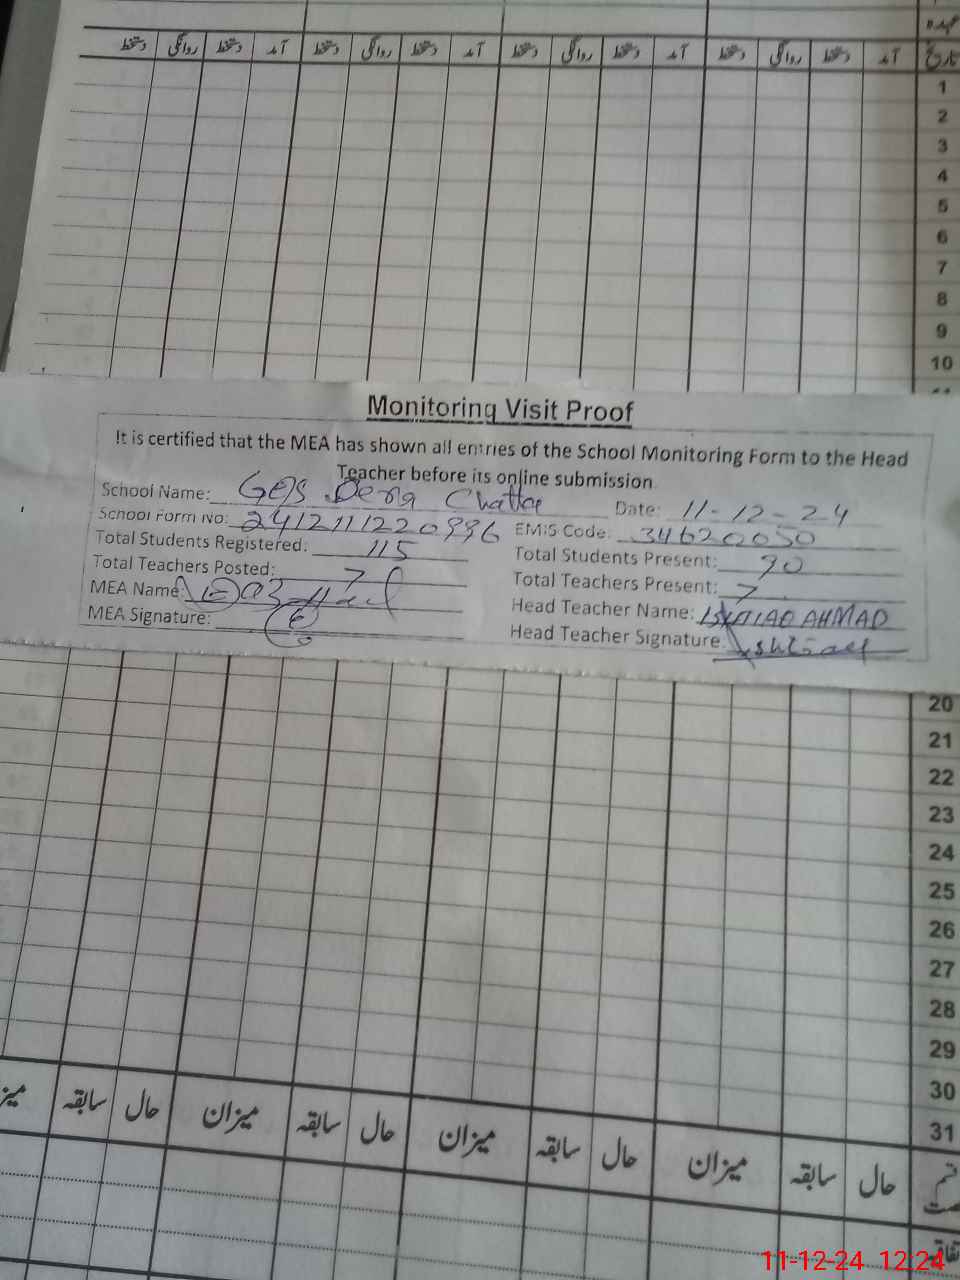 عہدہ
تاریخ آمد دستخط روانگی دستخط آمد دستخط روانگی دستخط آمد دستخط روانگی دستخط آمد دستخط روانگی دستخط
1
2
3
4
5
6
7
8
9
10
Monitoring Visit Proof
It is certified that the MEA has shown all entries of the School Monitoring Form to the Head
Teacher before its online submission
School Name: GES Dera Chatta Date: 11-12-24
School Form No: 2412111220996 EMIS Code: 34620050
Total Students Registered: 115 Total Students Present: 90
Total Teachers Posted: 7 Total Teachers Present: 7
MEA Name: Head Teacher Name: ISHTIAQ AHMAD
MEA Signature: Head Teacher Signature: Ishtiaq
20
21
22
23
24
25
26
27
28
29
30
31
حال سابقہ میزان حال سابقہ میزان حال سابقہ میزان حال سابقہ
11-12-24 12:24